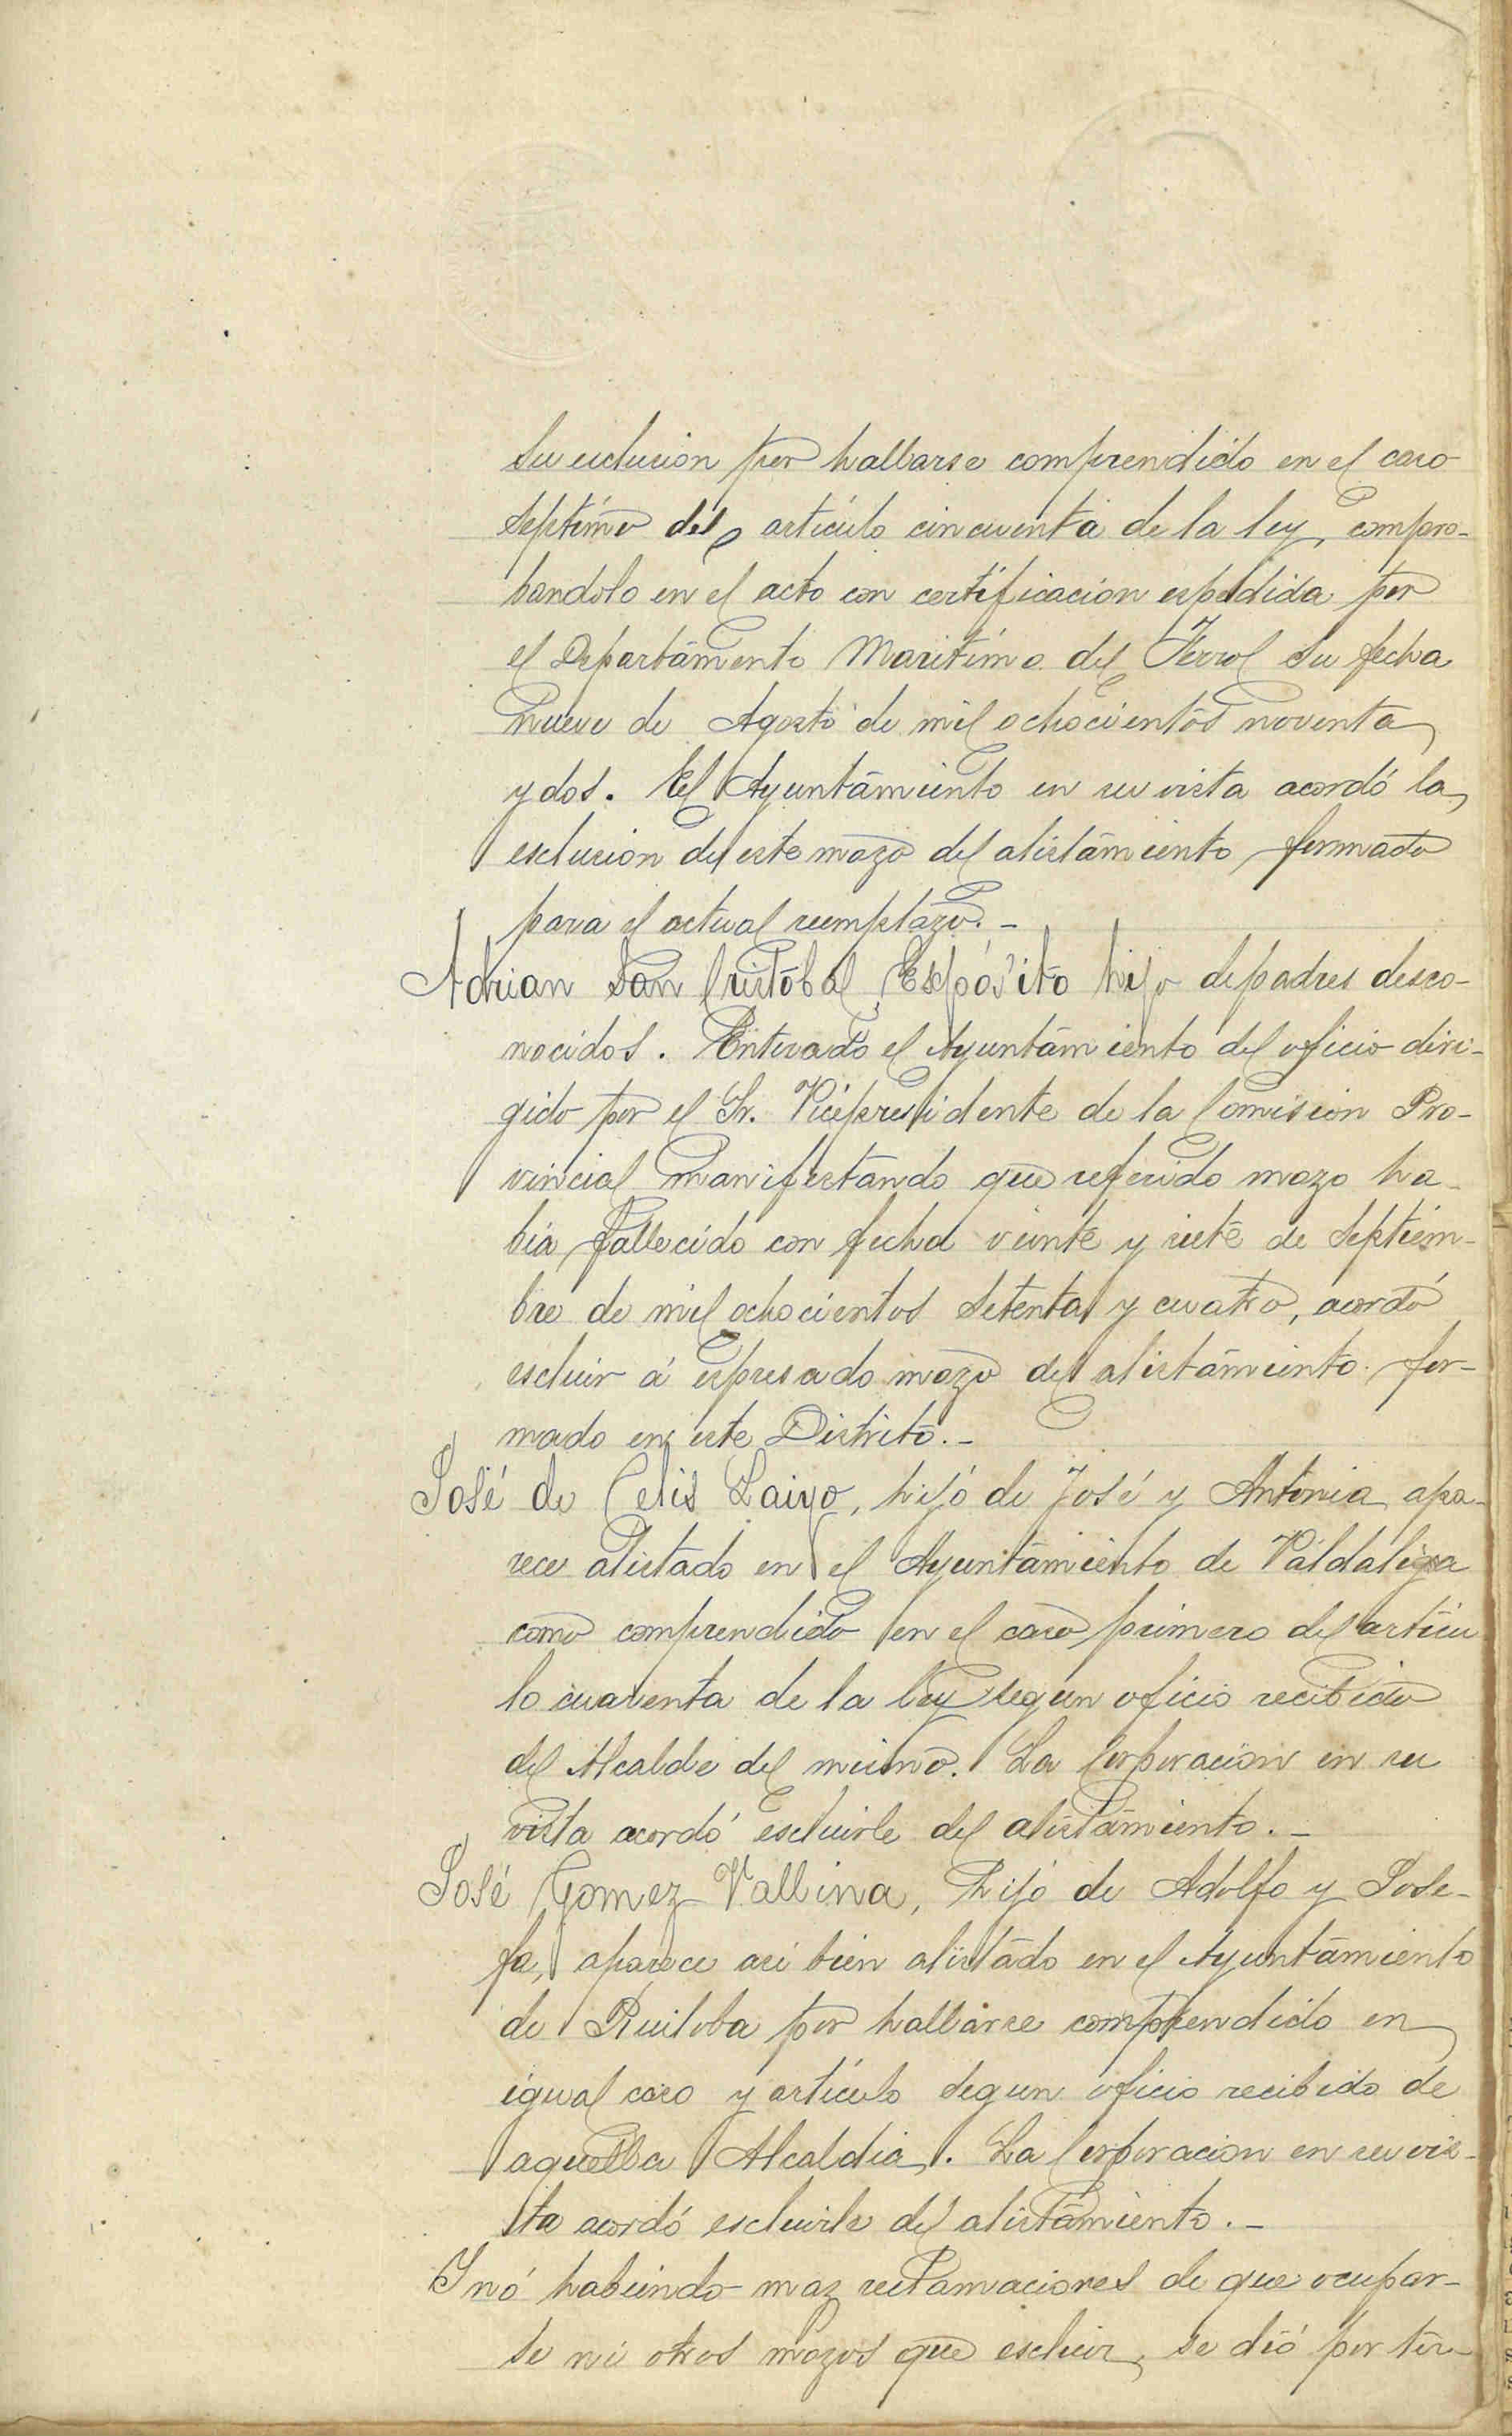 su esclusion por hallarse comprendido en el caso
septimo del articulo cincuenta de la ley, compro-
bandolo en el acto con certificacion espedida por
el Departamento Maritimo del Ferrol su fecha
nueve de Agosto de mil ochocientos noventa
y dos. El Ayuntamiento en su vista acordó la
esclusion de este mozo del alistamiento formado
para el actual reemplazo. -
Adrian San Cristóbal, Expósito hijo de padres desco-
nocidos. Enterado el Ayuntamiento del oficio diri-
gido por el Sr. Vicepresidente de la Comision Pro-
vincial manifestando que referido mozo ha-
bia fallecido con fecha veinte y siete de Septiem-
bre de mil ochocientos setenta y cuatro, acordó
escluir á espresado mozo del alistamiento for-
mado en este Distrito. -
José de Celis, hijo de José y Antonia apa-
rece alistado en el Ayuntamiento de Valdaliga
como comprendido en el caso primero del articu
lo cuarenta de la ley segun oficio recibido
del Alcalde del mismo. La Corporacion en su
vista acordó escluirle del alistamiento. -
José Gomez Vallina, hijo de Adolfo y Jose-
fa, aparece asi bien alistado en el Ayuntamiento
de Ruiloba por hallarse comprendido en
igual caso y articulo segun oficio recibido de
aquella Alcaldia. La Corporacion en su vis-
ta acordó escluirle del alistamiento. -
Y nó habiendo mas reclamaciones de que ocupar-
se ni otros mozos que escluir, se dió por ter-